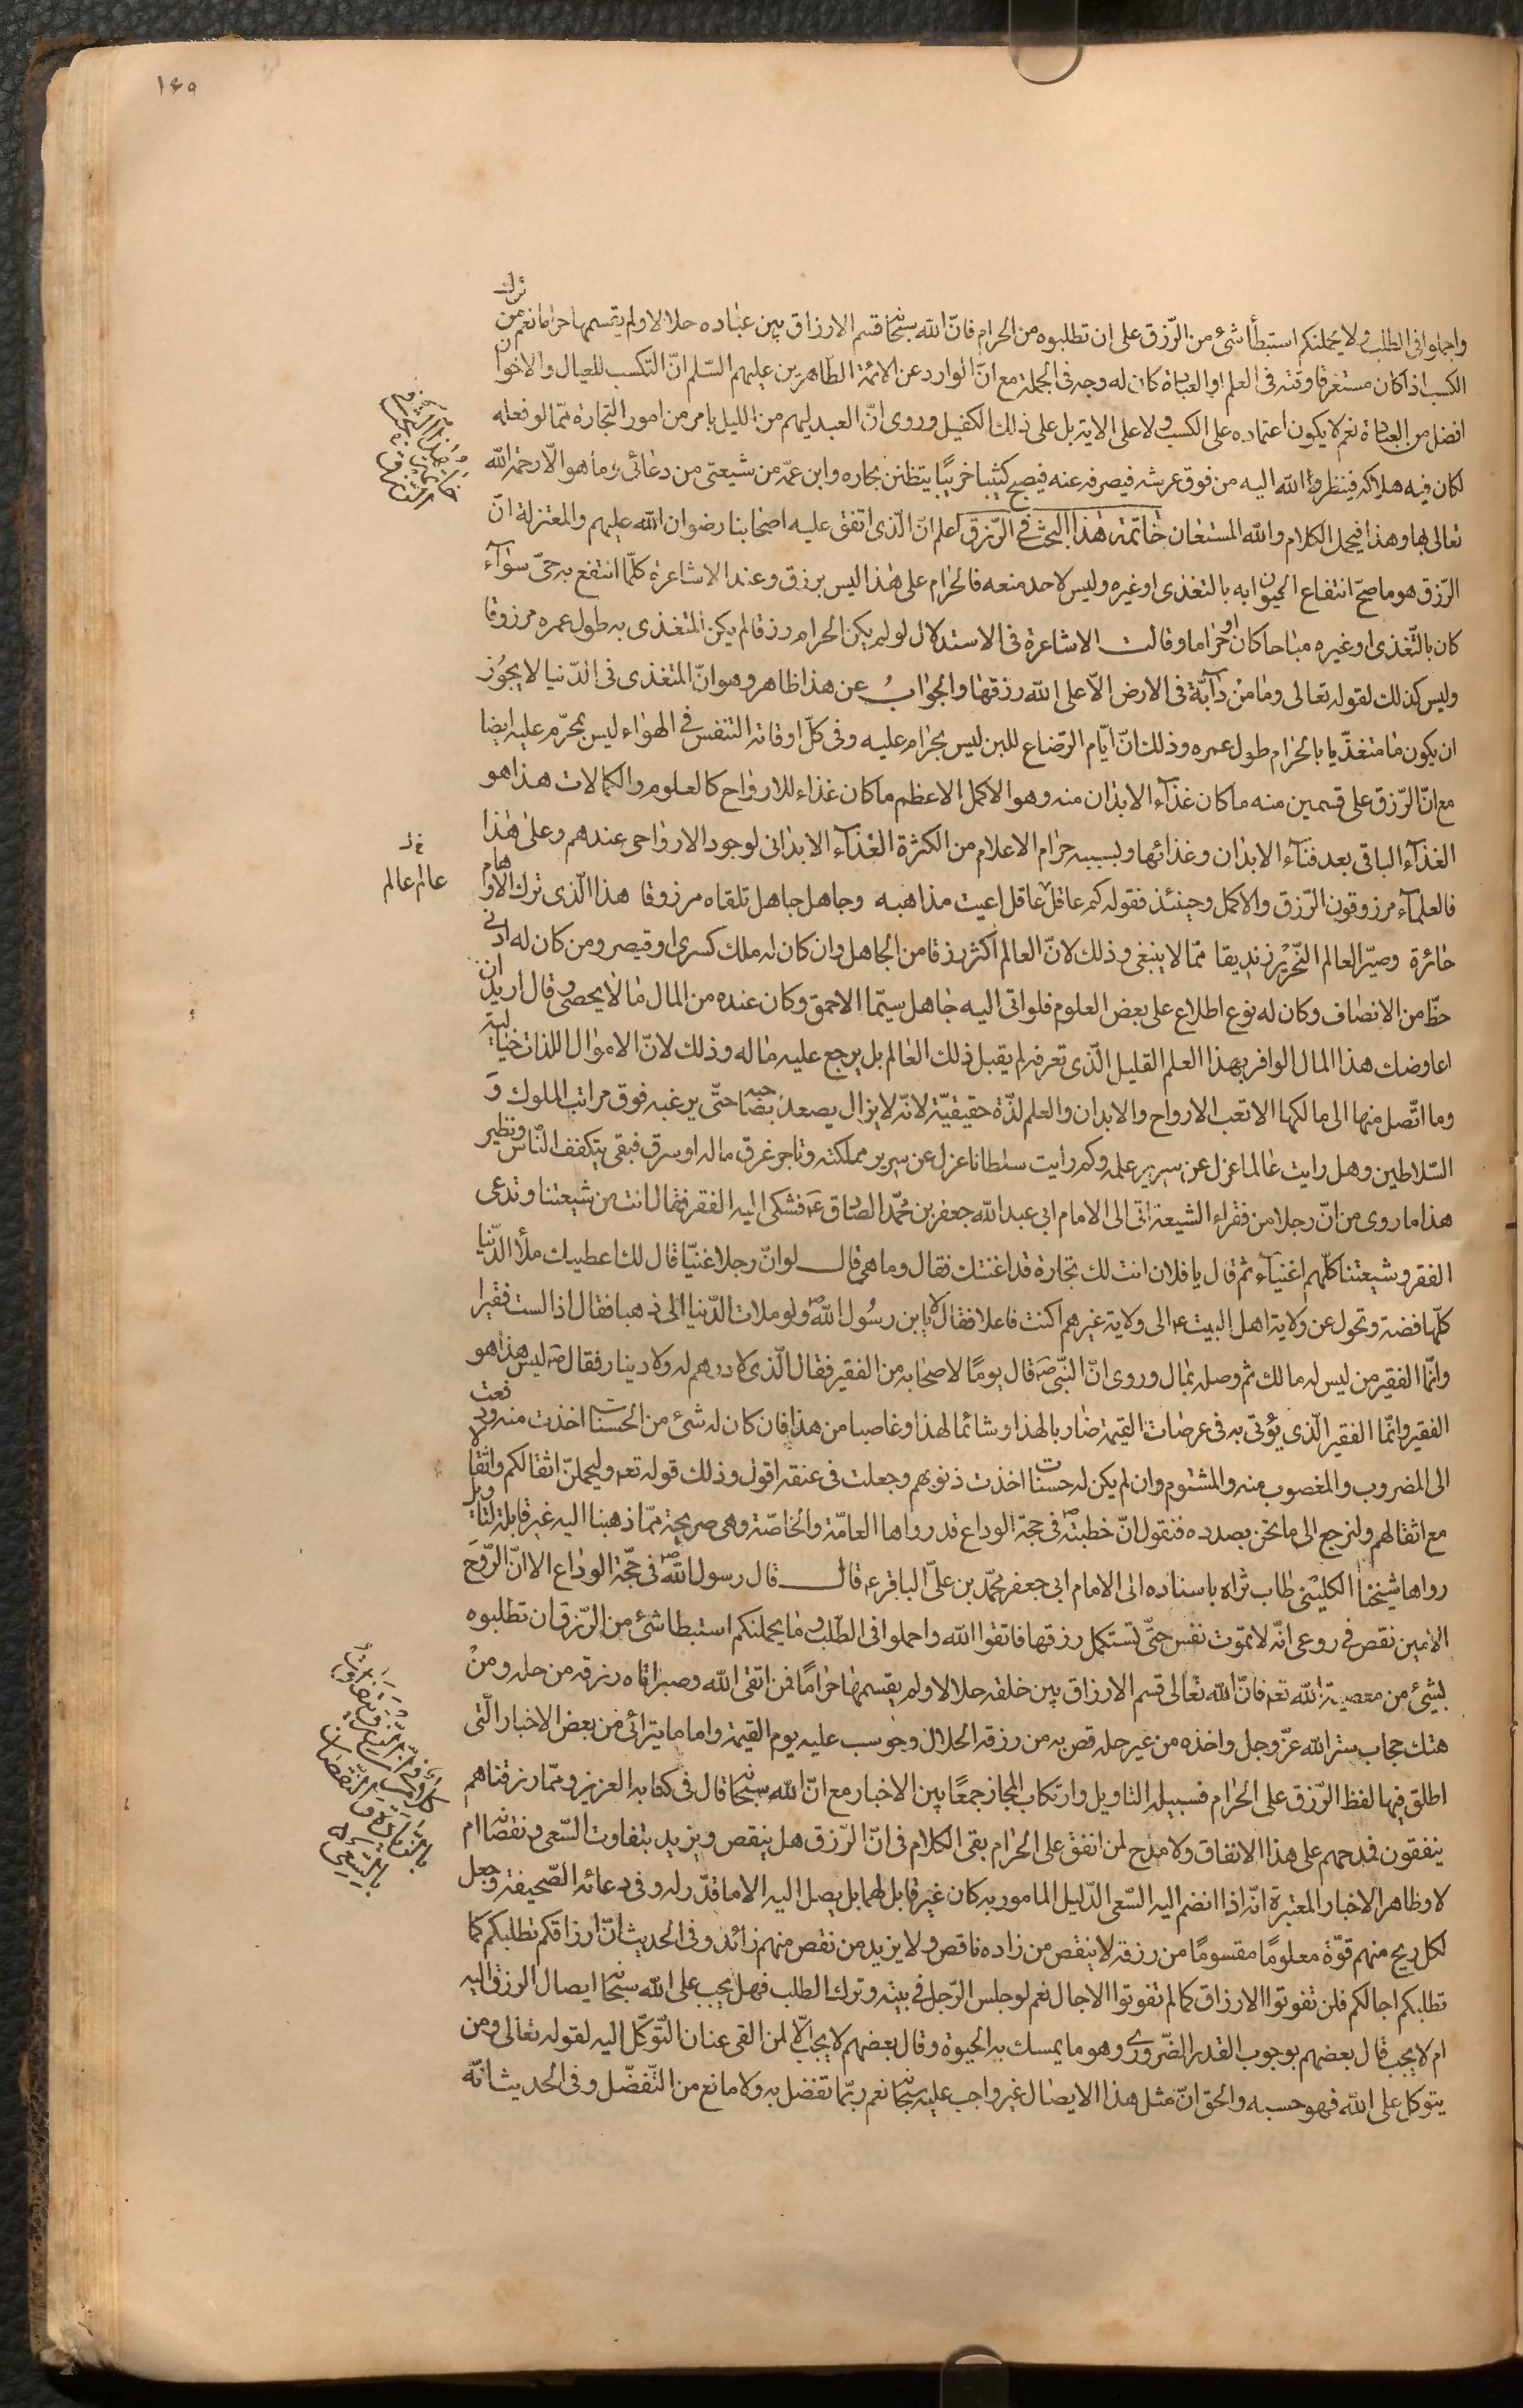 ١٤٥
واجملوا فى الطلب و لا يحملنكم استبطأ شئ من الرّزق على ان تطلبوه من الحرام فانّ الله سبحانه قسم الارزاق بين عباده حلالا ولم يقسمها حراما نعم من ترك
الكسب اذا كان مستغرقا وقته فى العلم او العبادة كان له وجه فى الجملة مع انّ الوارد عن الائمة الطّاهرين عليهم السّلم انّ التكسب للعيال والاخوان
افضل من العبادة نعم لا يكون اعتماده على الكسب و لا على الاية بل على ذالك الكفيل وروى انّ العبد ليهم من الليل بامر من امور التجارة ممّا لو فعله
لكان فيه هلاكه فينظر الله اليه من فوق عرشه فيصرفه عنه فيصبح كئيبا خريبًا يتظنن بجاره وابن عمّه من شيعتى من دعائى وما هو الّا رحمة الله
تعالى بها وهذا فيجمل الكلام والله المستعان خاتمة هذا البحث فى الرّزق اعلم انّ الّذى اتفق عليه اصحابنا رضوان الله عليهم والمعتزلة انّ
الرّزق هو ما صحّ انتفاع الحيوان به بالتغذى او غيره وليس لاحد منعه فالحرام على هذا ليس برزق وعند الاشاعرة كلّما انتفع به حىّ سوآء
كان بالتّغذى او غيره مباحا كان او حراما وقالت الاشاعرة فى الاستدلال لو لم يكن الحرام رزقا لم يكن المتغذى به طول عمره مرزوقا
وليس كذلك لقوله تعالى وما من دآبّة فى الارض الّا على الله رزقها والجواب عن هذا ظاهر وهو انّ المتغذى فى الدّنيا لا يجوز
ان يكون مّا متغذّيا بالحرام طول عمره وذلك انّ ايّام الرّضاع للبن ليس بحرام عليه وفى كلّ اوقاته التنفس فى الهواء ليس بمحرّم عليه ايضا
مع انّ الرّزق على قسمين منه ما كان غذآء الابدان منه وهو الاكمل الاعظم ما كان غذاء للارواح كالعلوم والكمالات هذا هو
الغذآء الباقى بعد فنآء الابدان وغذائها وبسببه حرام الاعلام من الكثرة الغذآء الابدانى لوجود الارواحى عندهم وعلى هذا
فالعلمآء مرزوقون الرّزق والاكمل وحينئذ فقوله كم عاقل عاقل اعيت مذاهبه وجاهل جاهل تلقاه مرزوقا هذا الّذى ترك الاوهام
حائرة وصيّر العالم النّحرير زنديقا ممّا لا ينبغى وذلك لانّ العالم اكثر رزقا من الجاهل وان كان له ملك كسرى او قيصر ومن كان له ادنى
حظّ من الانصاف وكان له نوع اطلاع على بعض العلوم فلو اتى اليه جاهل سيّما الاحمق وكان عنده من المال ما لا يحصى و قال اريد ان
اعاوضك هذا المال الوافر بهذا العلم القليل الّذى تعرفه لم يقبل ذلك العالم بل يرجع عليه ماله وذلك لانّ الاموال اللذات خيالية
وما اتّصل منها الى مالكها الا تعب الارواح والابدان والعلم لذّة حقيقيّة لانّه لا يزال يصعد بصاحبه حتّى يرغبه فوق مراتب الملوك وَ
السّلاطين وهل رايت عالما عزل عن سرير علمه وكم رايت سلطانا عزل عن سرير مملكته وتاجر غرق ماله او سرق فبقى يتكفف النّاس ونظير
هذا ما روى من انّ رجلا من فقراء الشيعة اتى الى الامام ابى عبد الله جعفر بن محمّد الصادق عَ فشكى اليه الفقر فقال انت من شيعتنا وتدعى
الفقر وشيعتنا كلّهم اغنيآء ثم قال يا فلان انت لك تجارة قد اغنتك فقال وما هى قال لو انّ رجلا غنيّا قال لك اعطيك ملأ الدّنيا
كلّها فضة وتحول عن ولاية اهل البيت ع الى ولاية غيرهم اكنت فاعلا فقال لا يا بن رسول الله ص ولو ملات الدّنيا الى ذهبا فقال اذا لست فقيرا
وانّما الفقير من ليس له مالك ثم وصله بمال وروى انّ النّبى ص قال يومًا لاصحابه من الفقير فقال الّذى لا درهم له ولا دينار فقال ص ليس هذا هو
الفقير وانّما الفقير الّذى يؤتى به فى عرضات القيمة ضاربا لهذا وشائما لهذا وغاصبا من هذا فان كان له شئ من الحسنات اخذت منه ودفعت
الى المضروب والمغصوب منه والمشتوم وان لم يكن له حسنات اخذت ذنوبهم وجعلت فى عنقه اقول وذلك قوله تعم وليحملنّ اثقالكم واثقالا
مع اثقالهم ولنرجع الى ما نحن بصدده فنقول انّ خطبته ص فى حجة الوداع قد رواها العامّة والخاصّة وهى صريحة ممّا ذهبنا اليه غير قابلة لتاويل
رواها شيخنا الكلينى طاب ثراه باسناده الى الامام ابى جعفر محمّد بن علىّ الباقر ع قال قال رسول الله ص فى حجّة الوداع الا انّ الرّوح
الامين نقص فى روعى انّه لا تموت نفس حتّى تستكمل رزقها فاتقوا الله واجملوا فى الطّلب و ما يحملنكم استبطا شئ من الرّزق ان تطلبوه
بشئ من معصية الله تعم فانّ الله تعالى قسم الارزاق بين خلقه حلالا ولم يقسمها حرامًا فمن اتقى الله وصبر اتاه رزقه من حله ومن
هتك حجاب ستر الله عزّ وجل واخذه من غير حله قص به من رزقه الحلال وحوسب عليه يوم القيمة واما ما يترائى من بعض الاخبار الّتى
اطلق فيها لفظ الرّزق على الحرام فسبيله التاويل وارتكاب المجاز جمعًا بين الاخبار مع انّ الله سبحانه قال فى كتابه العزيز وممّا رزقناهم
ينفقون فمدحهم على هذا الانفاق ولا مدح لمن انفق على الحرام بقى الكلام فى انّ الرّزق هل ينقص ويزيد بتفاوت السّعى ونقصا ام
لا وظاهر الاخبار المعتبرة انّه اذا انضم اليه السّعى الدّليل المامور به كان غير قابل لهما بل يصل اليه الا ما قدّر له وفى دعائه الصّحيفة وجعل
لكل ريح منهم قوّة معلومًا مقسومًا من رزقه لا ينقص من زاده ناقص و لا يزيد من نقص منهم زائد وفى الحديث انّ ارزاقكم تطلبكم كما
تطلبكم اجالكم فلن تفوتوا الارزاق كما لم تفوتوا الاجال نعم لو جلس الرّجل فى بيته وترك الطلب فهل يجب على الله سبحانه ايصال الرزق اليه
ام لا يجب قال بعضهم بوجوب القدر الضّرورى وهو ما يمسك به الحيوة وقال بعضهم لا يجب الّا لمن القى عنان التّوكّل اليه لقوله تعالى ومن
يتوكل على الله فهو حسبه والحق انّ مثل هذا الايصال غير واجب عليه سبحانه نعم ربّما تفضل به ولا مانع من التّفضّل وفى الحديث انّه
عالم عالم